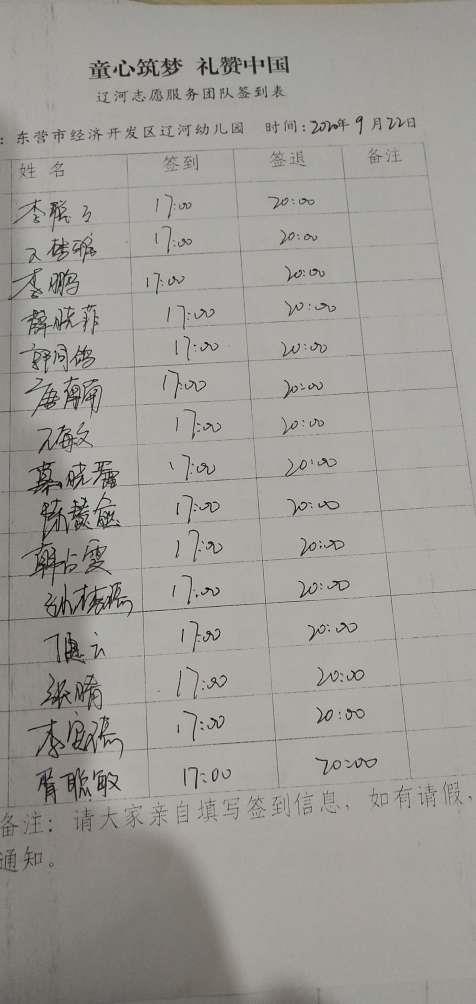 童心筑梦 礼赞中国
辽河志愿服务团队签到表
：东营市经济开发区辽河幼儿园 时间：2020年9月22日
姓名 签到 签退 备注
李聪 17:00 20:00
17:00 20:00
李鹏 17:00 20:00
薛晓菲 17:00 20:00
17:00 20:00
唐南南 17:00 20:00
敏 17:00 20:00
綦晓 17:00 20:00
17:00 20:00
韩占雯 17:00 20:00
孙 17:00 20:00
云 17:00 20:00
张晴 17:00 20:00
李 17:00 20:00
胥聪敏 17:00 20:00
备注：请大家亲自填写签到信息，如有请假，
通知。